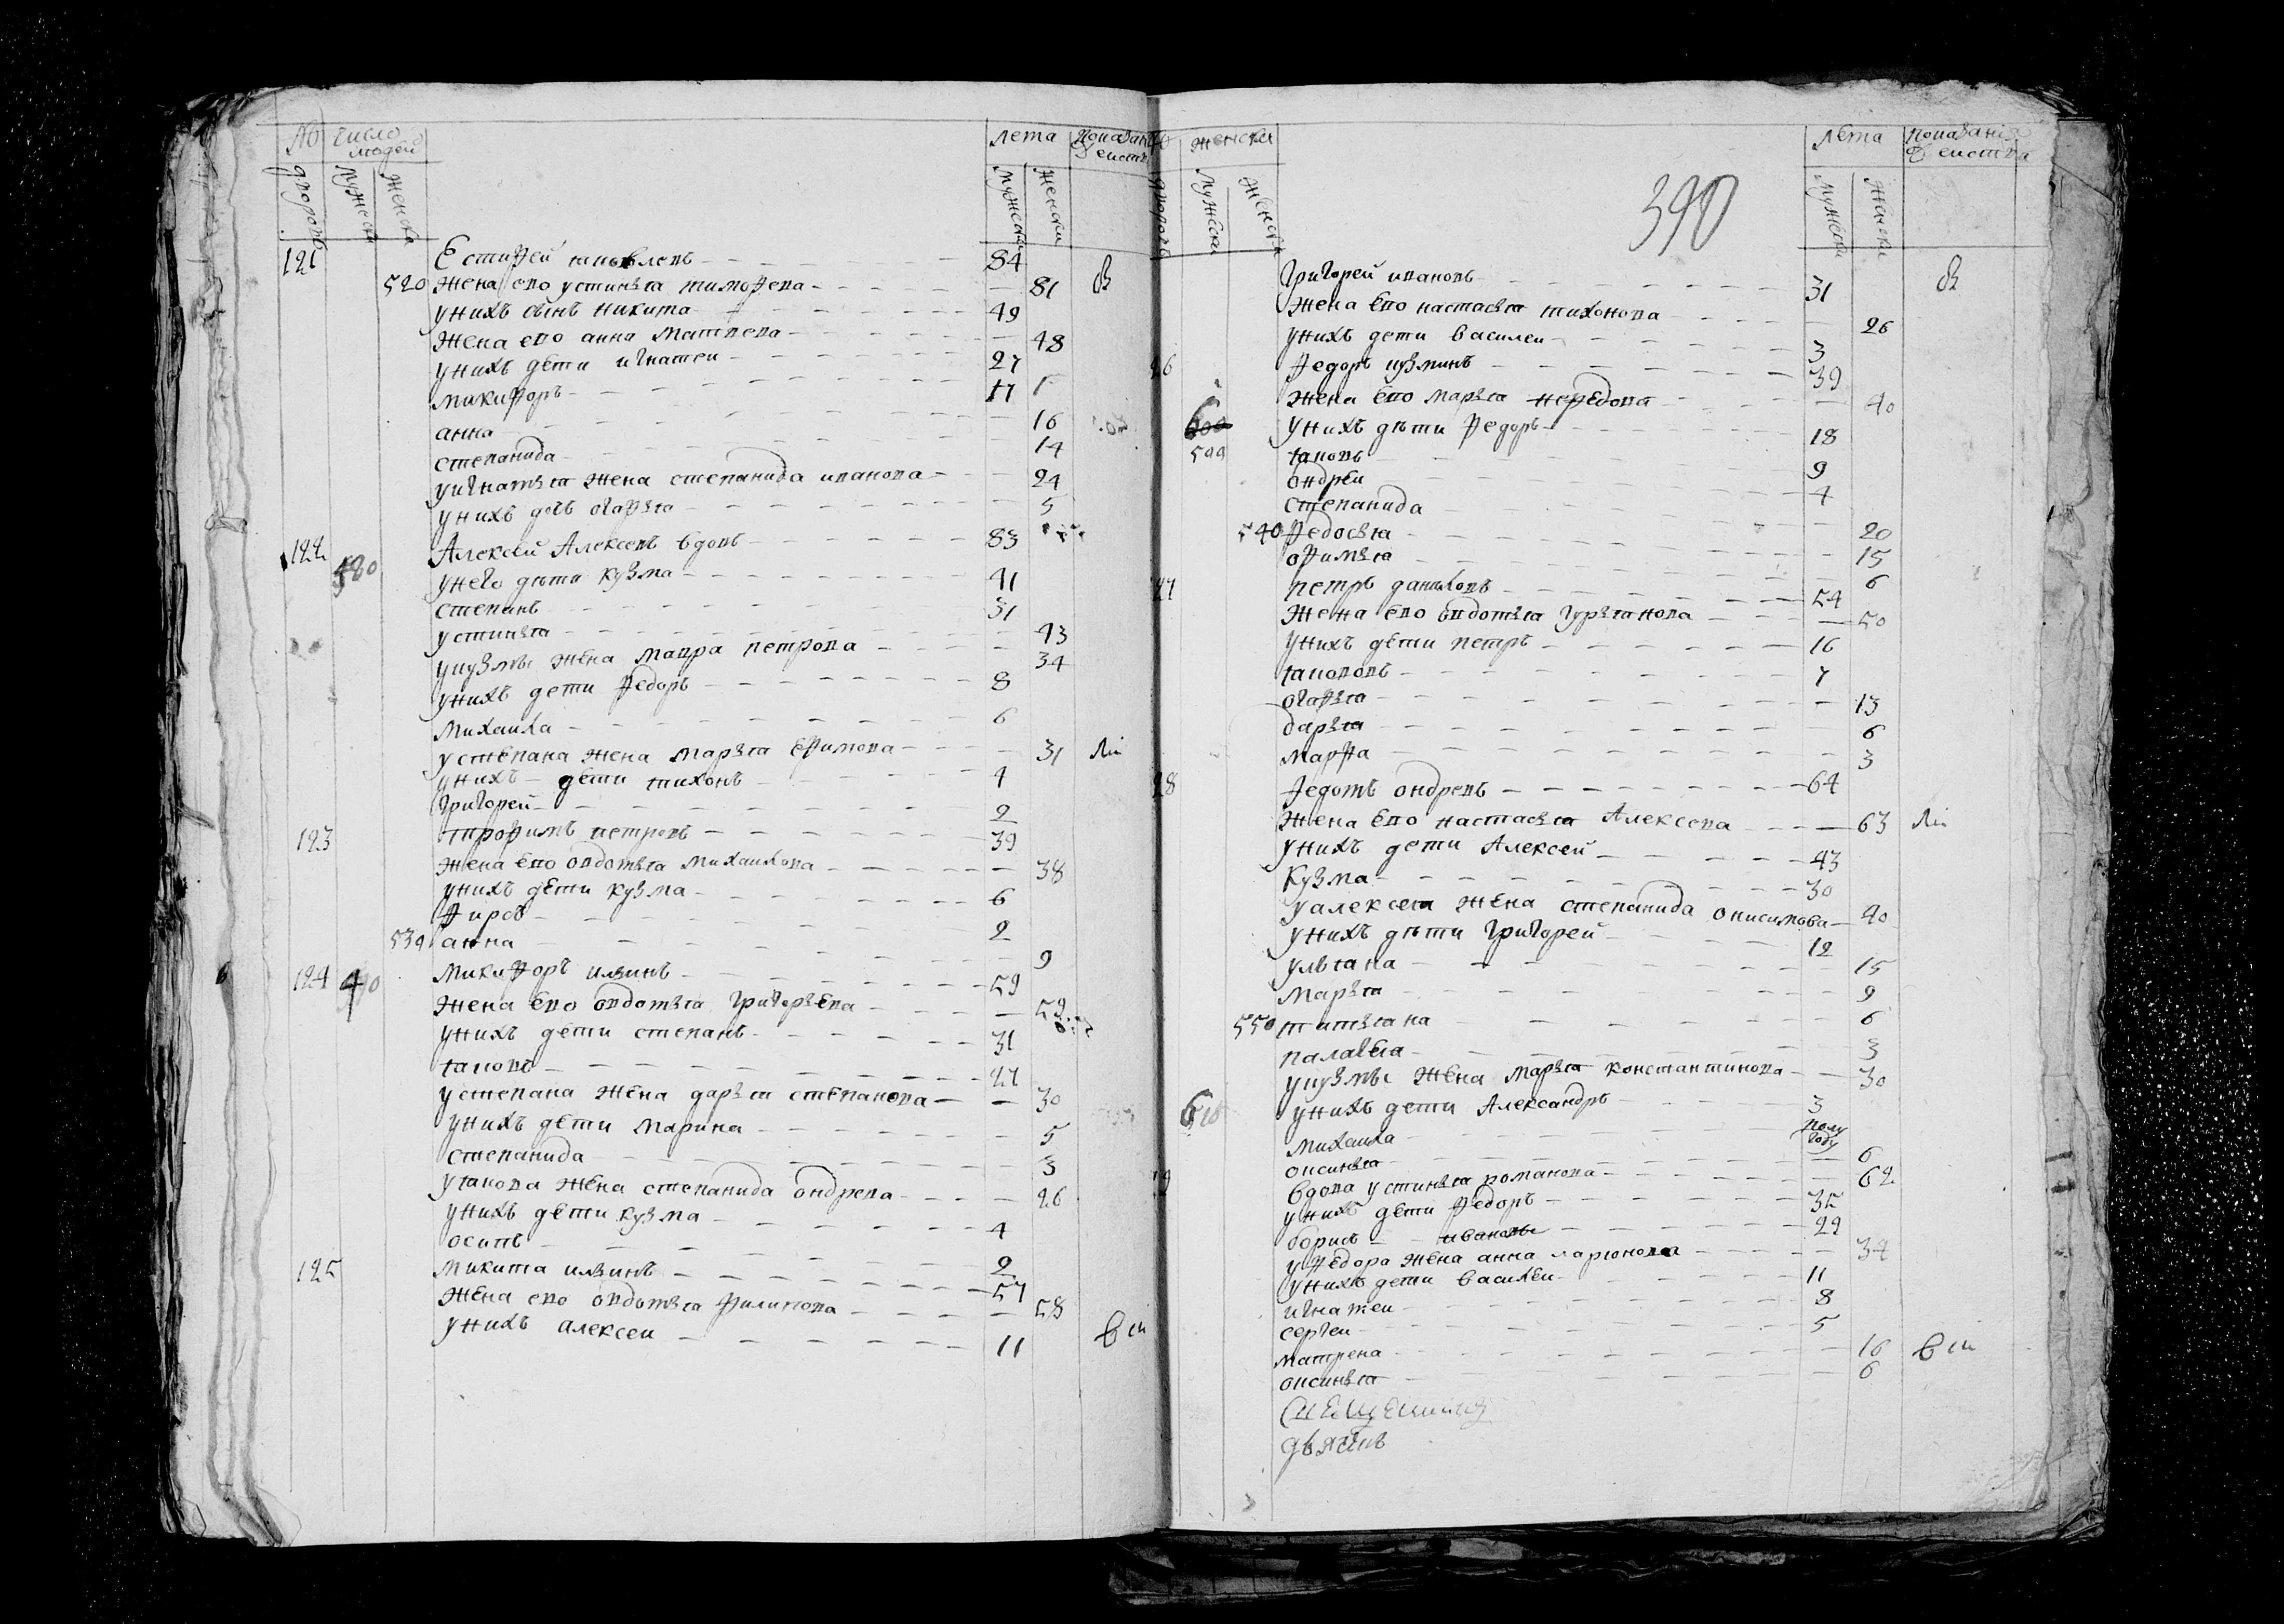 № число людей лета Показани действ
дворовъ мужеска женска мужески женски
121 Естифей яковлевъ 84
520 жена ево устинья тимофева 81 в
унихъ сынъ никита 49
жена ево анна матвева 48
унихъ дети игнатеи 27
микифоръ 17
анна 16
степанида 14
уигнатья жена степанида иванова 24
унихъ дочь огафья 5
122 Алексей Алексевъ вдовъ 83
480 унего дѣти кузма 41
степанъ 31
устинья 43
укузмы жена мавра петрова 34
унихъ дети федоръ 8
михаила 6
устепана жена марья ефимова 31 ли
унихъ дети тихонъ 4
григорей 2
123 трофимъ петровъ 39
жена ево овдотья михаилова 38
унихъ дети кузма 6
фирсъ 2
530 анна 9
124 490 микифоръ ильинъ 59
жена ево овдотья григорьева 59
унихъ дети степанъ 31
яковъ 27
устепана жена дарья степанова 30
унихъ дети марина 5
степанида 3
уякова жена степанида ондрева 26
унихъ дети кузма 4
осипъ 2
125 микита ильинъ 57
жена ево овдотья филипова 58
унихъ алексеи 11
женски лета показания действа
дворовъ мужески женски мужески женски
390
григорей ивановъ 31 в
жена ево настасья тихонова 26
унихъ дети василеи 3
26 федоръ кузминъ 39
жена ево марья нефедова 40
500 унихъ дѣти федоръ 18
яковъ 9
ондреи 4
степанида 20
540 федосья 15
офимья 6
27 петръ даниловъ 54
жена ево овдотья гурьянова 50
унихъ дети петръ 16
яковъ 7
огафья 13
дарья 6
марфа 3
28 федотъ ондревъ 64
жена ево настасья Алексева 63 ли
унихъ дети Алексей 43
кузма 30
уалексея жена степанида онисимова 40
унихъ дѣти григорей 12
ульяна 15
марья 9
550 татьяна 6
палагея 3
укузмы жена марья константинова 30
510 унихъ дети Александръ 3
михаила полу году
оксинья 6
вдова устинья романова 62
унихъ дети федоръ 35
борисъ ивановы 29
уфедора жена анна ларионова 34
унихъ дети василеи 11
игнатеи 8
сергеи 5
матрена 16
оксинья 6
священникъ
дьячекъ